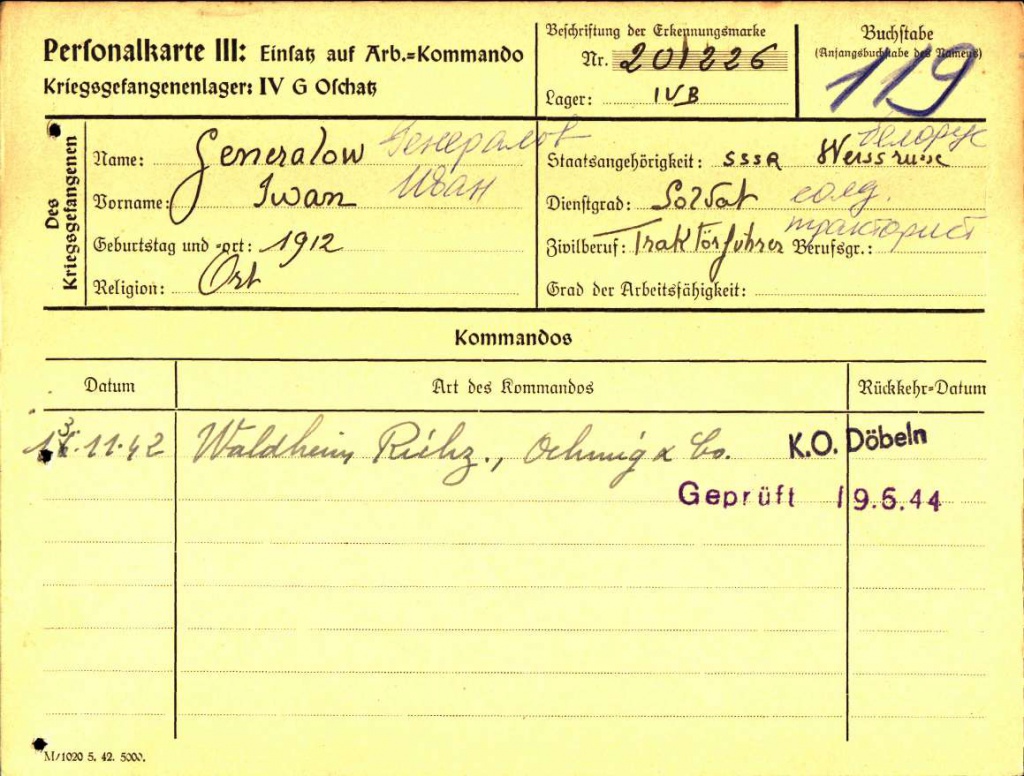 Personalkarte III: Einsatz auf Arb.=Kommando
Kriegsgefangenenlager: IV G Oschatz
Beschriftung der Erkennungsmarke
Nr. 201226
Lager: IVB
Buchstabe
(Anfangsbuchstabe des Namens)
119
Des Kriegsgefangenen
Name: Generalow Генералов
Vorname: Iwan Иван
Geburtstag und =ort: 1912
Religion: Ort
белорус
Staatsangehörigkeit: SSSR Weissruse
Dienstgrad: Soldat солд.
тракторист
Zivilberuf: Traktörführer Berufsgr.:
Grad der Arbeitsfähigkeit:
Kommandos
Datum Art des Kommandos Rückkehr=Datum
13.11.42 Waldheim Richz., Oehmig & Co. K.O. Döbeln
Geprüft 19.6.44
M/1020 5. 42. 5000.